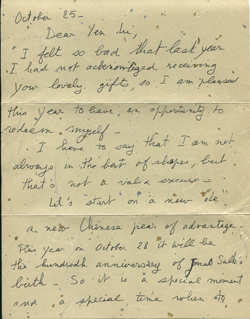 October 25-
Dear Yen Lu,
I felt so bad that last year
I had not acknowledged receiving
your lovely gifts, so I am pleased
this year to have an opportunity to
redeem myself-
I have to say that I am not
always in the best of shapes, but
that's not a valid excuse-
Let's start on a new
a new Chinese year of advantage
This year on October 28 it will be
the hundredth anniversary of Jonas Salk's
birth. So it is a special moment
and a special time when